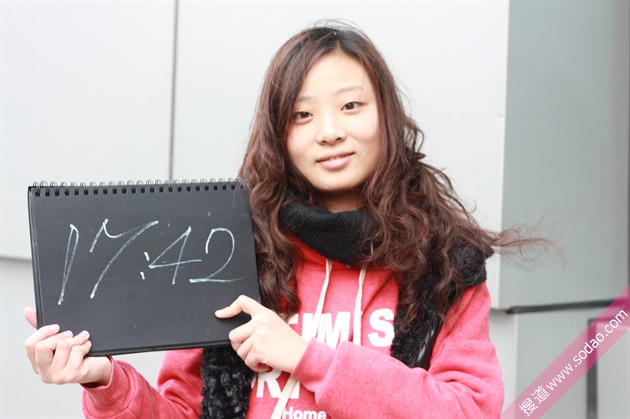 17:42
Home
搜道www.sodao.com